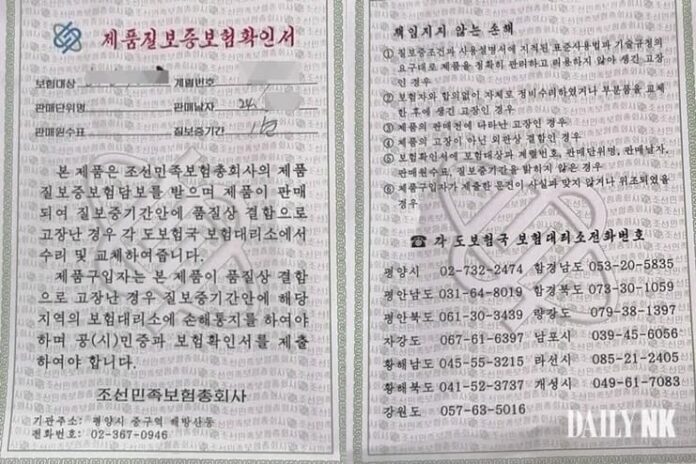 제품질보증보험확인서
보험대상 계렬번호
판매단위명 판매날자 24.
판매원수표 질보증기간
본 제품은 조선민족보험총회사의 제품
질보증보험담보를 받으며 제품이 판매
되여 질보증기간안에 품질상 결함으로
고장난 경우 각 도보험국 보험대리소에서
수리 및 교체하여줍니다.
제품구입자는 본 제품이 품질상 결함
으로 고장난 경우 질보증기간안에 해당
지역의 보험대리소에 손해통지를 하여야
하며 공(시)민증과 보험확인서를 제출
하여야 합니다.
조선민족보험총회사
기관주소: 평양시 중구역 해방산동
전화번호: 02-367-0946
책임지지 않는 손해
① 질보증조건과 사용설명서에 지적된 표준사용법과 기술규정의
요구대로 제품을 정확히 관리하고 리용하지 않아 생긴 고장
인 경우
② 보험자와 합의없이 자체로 정비수리하였거나 부분품을 교체
한 후에 생긴 고장인 경우
③ 제품의 판매전에 나타난 고장인 경우
④ 제품의 고장이 아닌 외관상 결함인 경우
⑤ 보험확인서에 보험대상과 계렬번호, 판매단위명, 판매날자,
판매원수표, 질보증기간을 밝히지 않은 경우
⑥ 제품구입자가 제출한 문건이 사실과 맞지 않거나 위조되였을
경우
☎ 각 도보험국 보험대리소전화번호
평양시 02-732-2474 함경남도 053-20-5835
평안남도 031-64-8019 함경북도 073-30-1059
평안북도 061-30-3439 량강도 079-38-1397
자강도 067-61-6397 남포시 039-45-6056
황해남도 045-55-3215 라선시 085-21-2405
황해북도 041-52-3737 개성시 049-61-7083
강원도 057-63-5016
DAILY NK